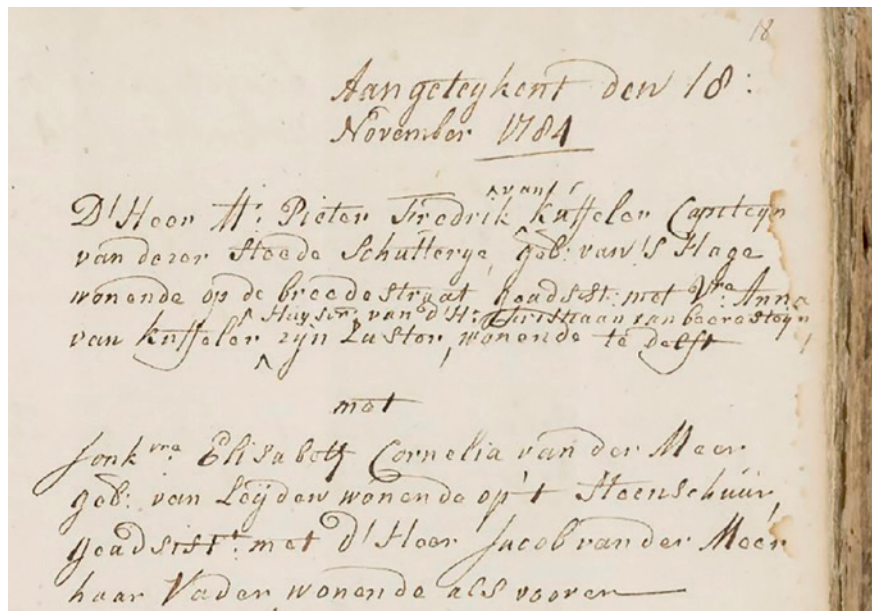 18
Aangeteykent den 18:
November 1784
D'Heer Mr. Pieter Fredrik van Kuffeler Capiteyn
van dezer Steede Schutterye, geb: van 's Hage
wonende op de breedestraat geadsist: met Vre. Anna
Huysvr. van d'Hr. Christiaan van beeresteyn
van Kuffeler zyn Zuster, wonende te delft
met
Jonkvre Elisabeth Cornelia van der Meer
geb: van Leyden wonende op 't Steenschuur,
geadsistt. met d'Heer Jacob van der Meer
haar Vader, wonende als vooren